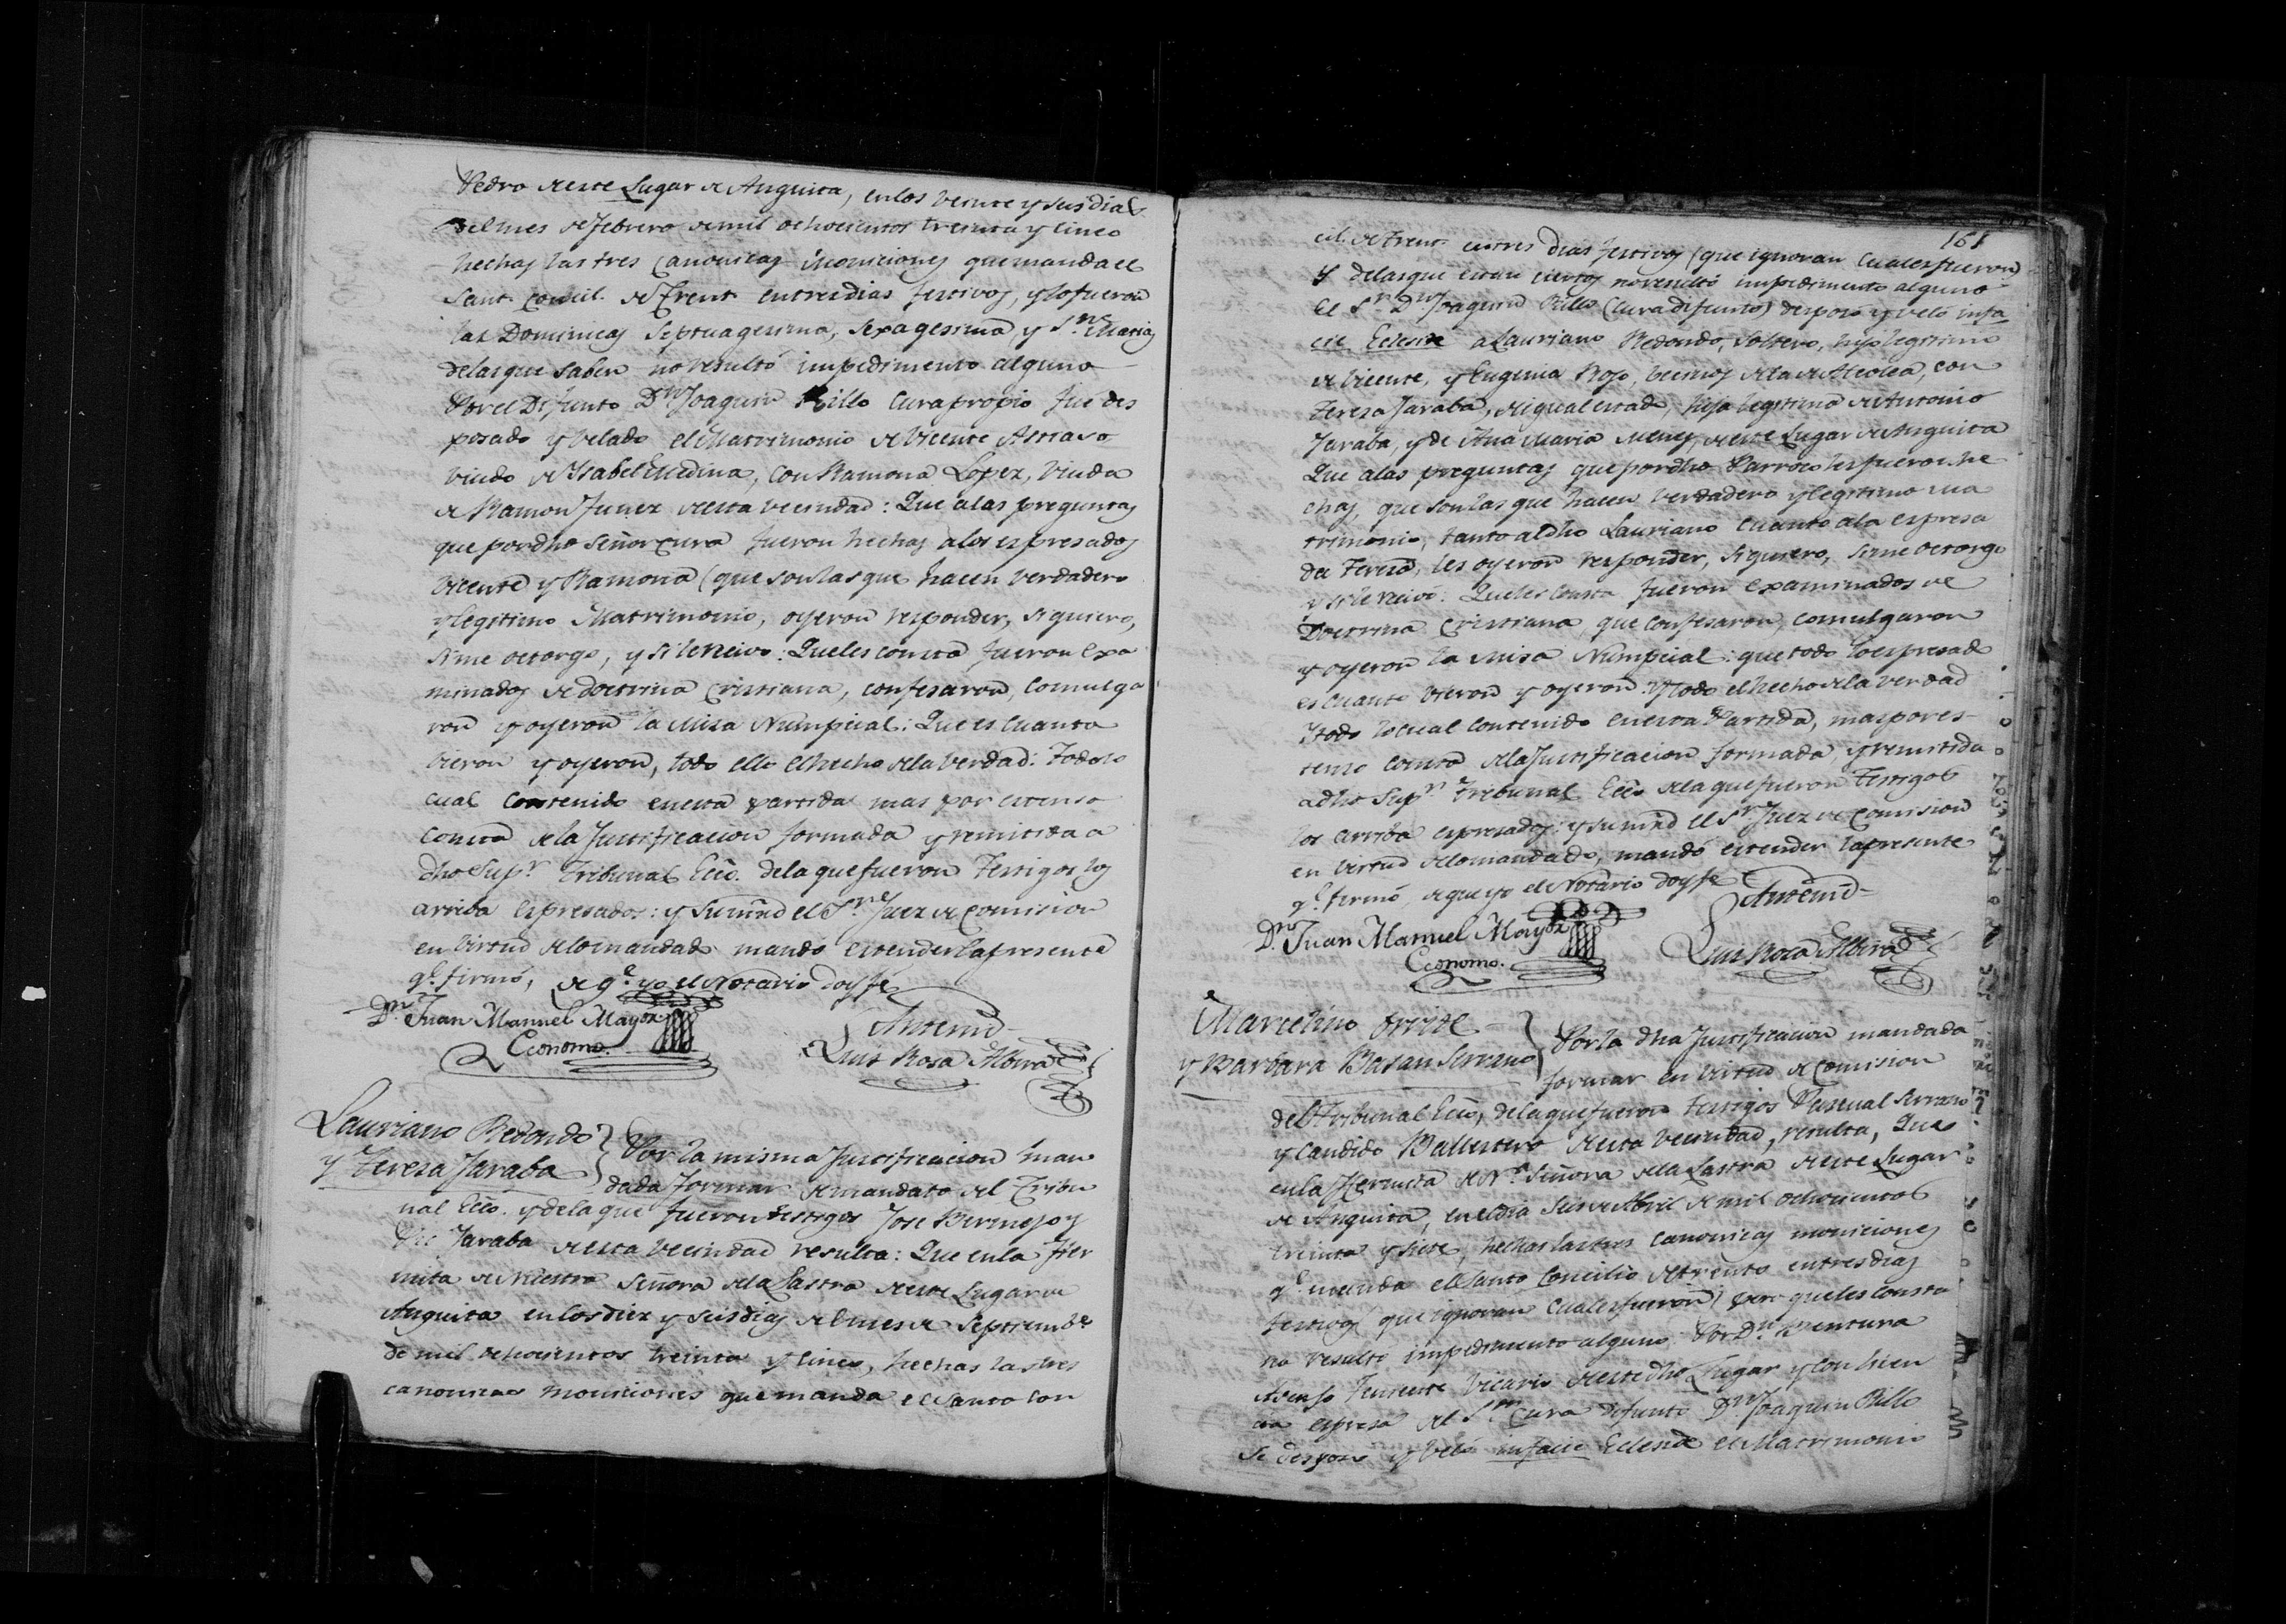 Pedro de este Lugar de Anguita, en los veinte y seis dias
del mes de Febrero de mil ochocientos treinta y cinco
hechas las tres canonicas moniciones que manda el
Sant. Concil. de Trent. en tres dias festivos, y lo fueron
las Dominicas Septuagesima, Sexagesima y
de las que saben no resultó impedimento alguno
Por el Difunto Dn Joaquin Rillo Cura propio fue des
posado y velado el Matrimonio de Vicente
viudo de Ysabel Medina, con Ramona Lopez, viuda
de Ramon Funez de esta vecindad: Que a las preguntas
que por dho Señor Cura fueron hechas a los expresados
Vicente y Ramona (que son las que hacen verdadero
y legitimo Matrimonio, oyeron responder, si quiero,
si me octorgo, y si le recivo: Que les consta fueron exa
minados de doctrina cristiana, confesaron, comulga
ron y oyeron la Misa Numpcial: Que es cuanto
vieron y oyeron, todo ello el hecho de la verdad: Todo lo
cual contenido en esta partida mas por estenso
consta de la Justificacion formada y remitida a
dho Supr Tribunal Ecco. de la que fueron Testigos los
arriba espresados: y su mrd el Sr. Juez de Comision
en virtud de lo mandado mandó estender la presente
qe. firmó, de qe. yo el Notario doy fe
Dn. Juan Manuel Mayor
Economo.
Antemi
Luis Rosa Albira
Lauriano Redondo
y Teresa Jaraba
Por la misma Justificacion man
dada formar de mandato del Tribu
nal Ecco. y de la que fueron testigos Jose Bermejo y
Jaraba de esta vecindad resulta: Que en la Her
mita de Nuestra Señora de la Lastra de este Lugar de
Anguita en los diez y seis dias del mes de Septiembe
de mil ochocientos treinta y cinco, hechas las tres
canonicas moniciones que manda el Santo Con
161
cil. de Trent. en tres dias festivos (que ignoran cuales fueron)
y de las que estan ciertos no resultó impedimento alguno
El Sr. Dn Joaquin Rillo (Cura difunto) desposó y veló in fa
cie Eclesie a Lauriano Redondo, soltero, hijo legitimo
de Vicente, y Eugenia Rojo, vecinos de la de Alcolea, con
Teresa Jaraba, de igual estado, hija legitima de Antonio
Jaraba, y de Ana Maria de este Lugar de Anguita
Que a las preguntas que por dho Parroco les fueron he
chas, que son las que hacen verdadero y legitimo ma
trimonio, tanto al dho Lauriano cuanto a la espresa
da Teresa, les oyeron responder, si quiero, si me octorgo
y si le recivo: Que les consta fueron examinados de
Doctrina Cristiana, que confesaron, comulgaron
y oyeron la Misa Numpcial: que todo lo espresado
es cuanto vieron y oyeron: y todo el hecho de la verdad
Ytodo lo cual contenido en esta Partida, mas por es
tenso consta de la Justificacion formada, y remitida
a dho Supr Tribunal Ecco de la que fueron Testigos
los arriba espresados: y su mrd el Sr. Juez de Comision
en virtud de lo mandado, mandó estender la presente
qe. firmó, de que yo el Notario doy fe
Dn. Juan Manuel Mayor
Economo.
Antemi
Luis Rosa Albira
Marcelino
y Barbara Basan Serrano
Por la dha Justificacion mandada
formar en virtud de Comision
del Tribunal Ecco, de la que fueron testigos Pascual Serrano
y Candido Ballestero de esta vecindad, resulta, Que
en la Hermita de Na. Señora de la Lastra de este Lugar
de Anguita, en el dia seis de Abril de mil ochocientos
treinta y siete, hechas las tres canonicas moniciones
qe. manda el Santo Concilio de Trento en tres dias
festivos (que ignoran cuales fueron) pero que les consta
no resultó impedimento alguno: Por Dn.
Teniente Vicario de este dho Lugar y con licen
cia espresa del Sr. Cura difunto Dn Joaquin Rillo
se desposó y veló in facie Eclesie el Matrimonio